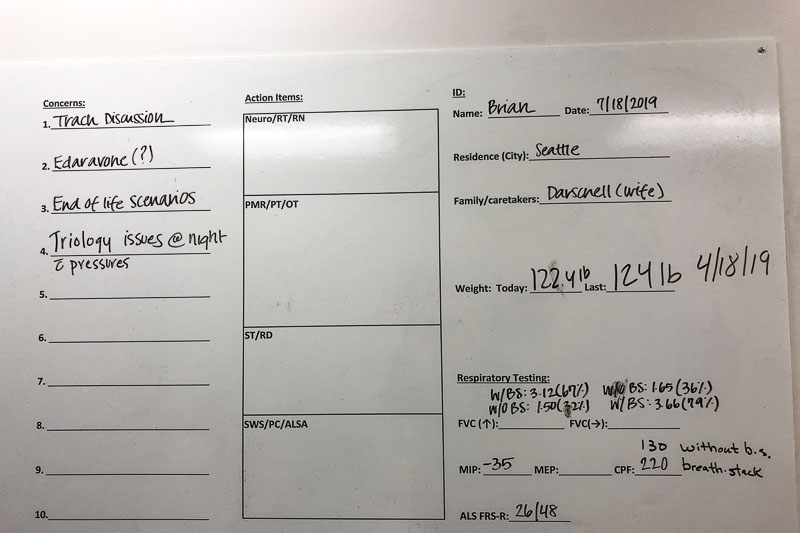 Concerns:
1. Trach Discussion
2. Edaravone (?)
3. End of life scenarios
4. Triology issues @ night
c̄ pressures
5.
6.
7.
8.
9.
10.
Action Items:
Neuro/RT/RN
PMR/PT/OT
ST/RD
SWS/PC/ALSA
ID:
Name: Brian Date: 7/18/2019
Residence (City): Seattle
Family/caretakers: Darschell (wife)
Weight: Today: 122.4 lb Last: 124 lb 4/18/19
Respiratory Testing:
W/BS: 3.12 (67%) W/O BS: 1.65 (36%)
W/O BS: 1.50 (32%) W/BS: 3.66 (79%)
FVC (↑): FVC(→):
130 without b.s.
MIP: -35 MEP: CPF: 220 breath-stack
ALS FRS-R: 26/48